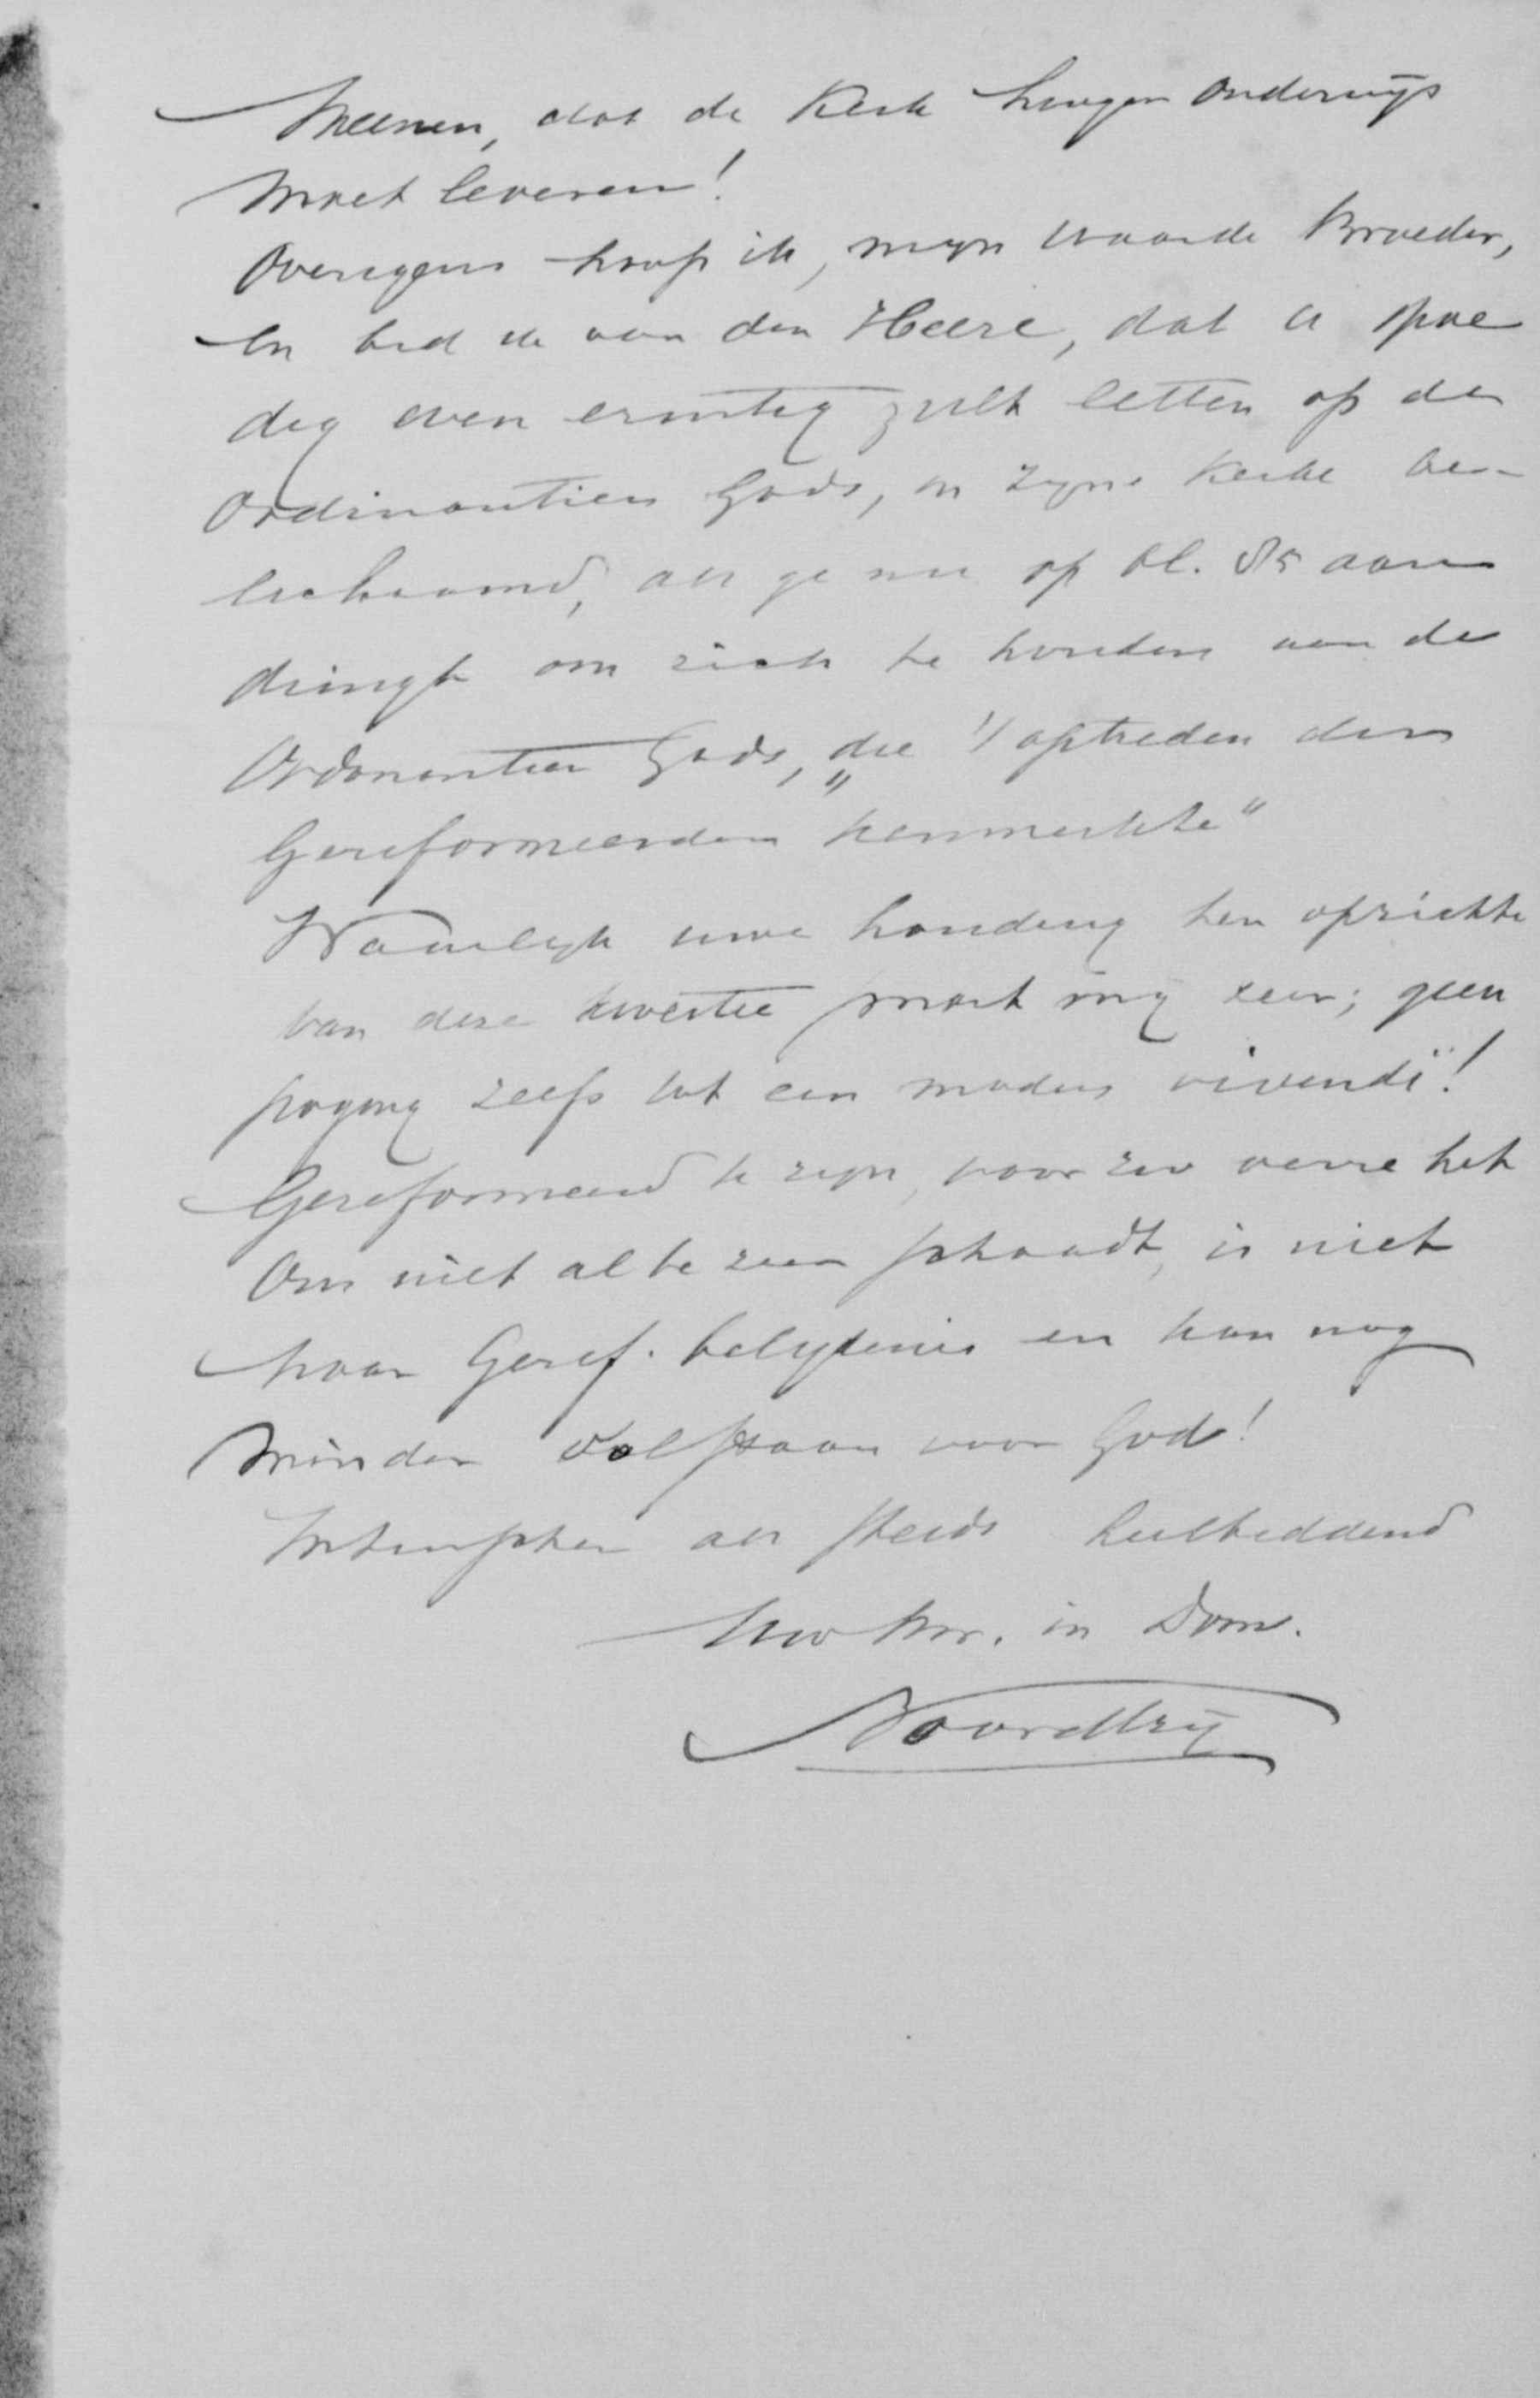 Meenen, dat de Kerk hooger onderwijs
moet leveren!
Overigens hoop ik, mijn waarde Broeder,
en bid ik van den Heere, dat U spoe
dig even ernstig zult letten op de
Ordinantien Gods, in Zijne Kerke be-
lichaamd, als ge nu op bl. 85 aan
dringt om zich te houden aan de
Ordonantien Gods, „die 't optreden der
Gereformeerden kenmerkte"
Waarlijk uwe houding ten opzichte
van deze kwestie smart mij zeer; geen
poging zelfs tot een modus vivendi!
Gereformeerd te zijn, voor zoo verre het
Ons niet al te zeer schaadt, is niet
naar Geref. belijdenis en kan nog
minder volstaan voor God!
Intusschen als steeds heilbiddend
Uw br. in Dom.
Noordtzij